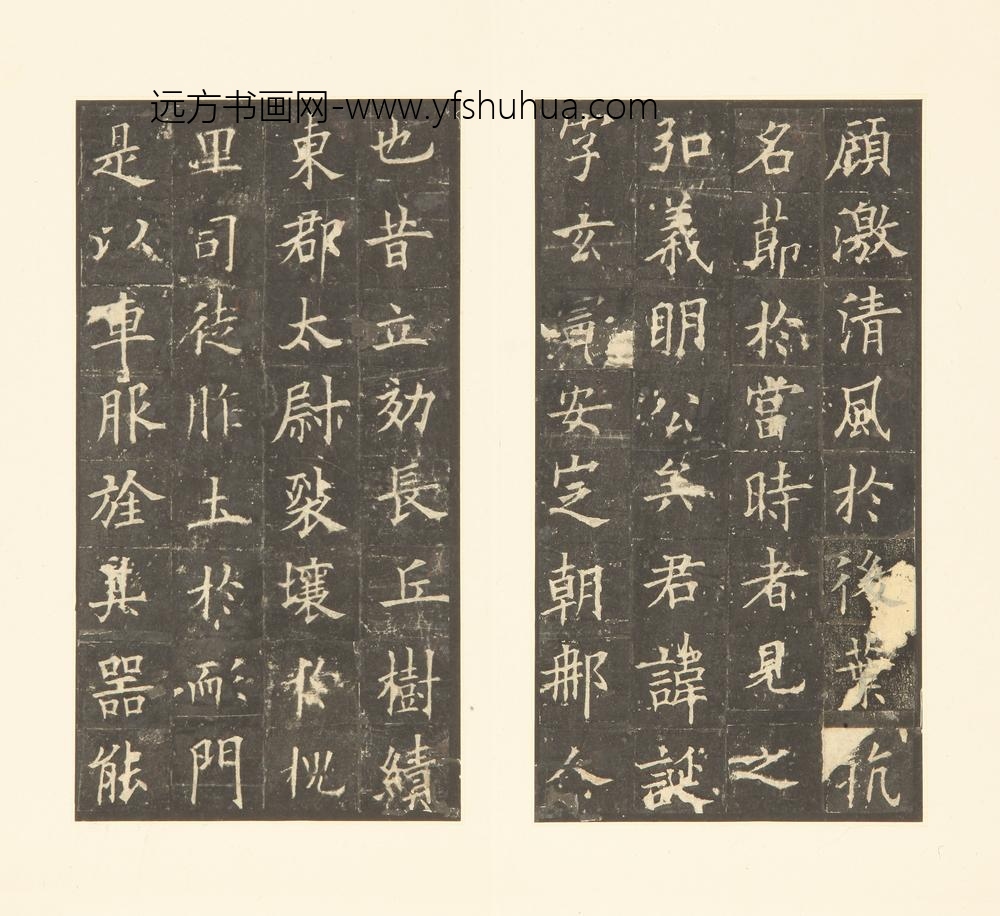 远方书画网-www.yfshuhua.com
顧激清風於後葉抗
名節於當時者見之
弘義明公矣君諱誕
字玄言安定朝那人
也昔立効長丘樹績
東郡太尉裴壤於
里司徒胙土於耏門
是以車服旌其器能